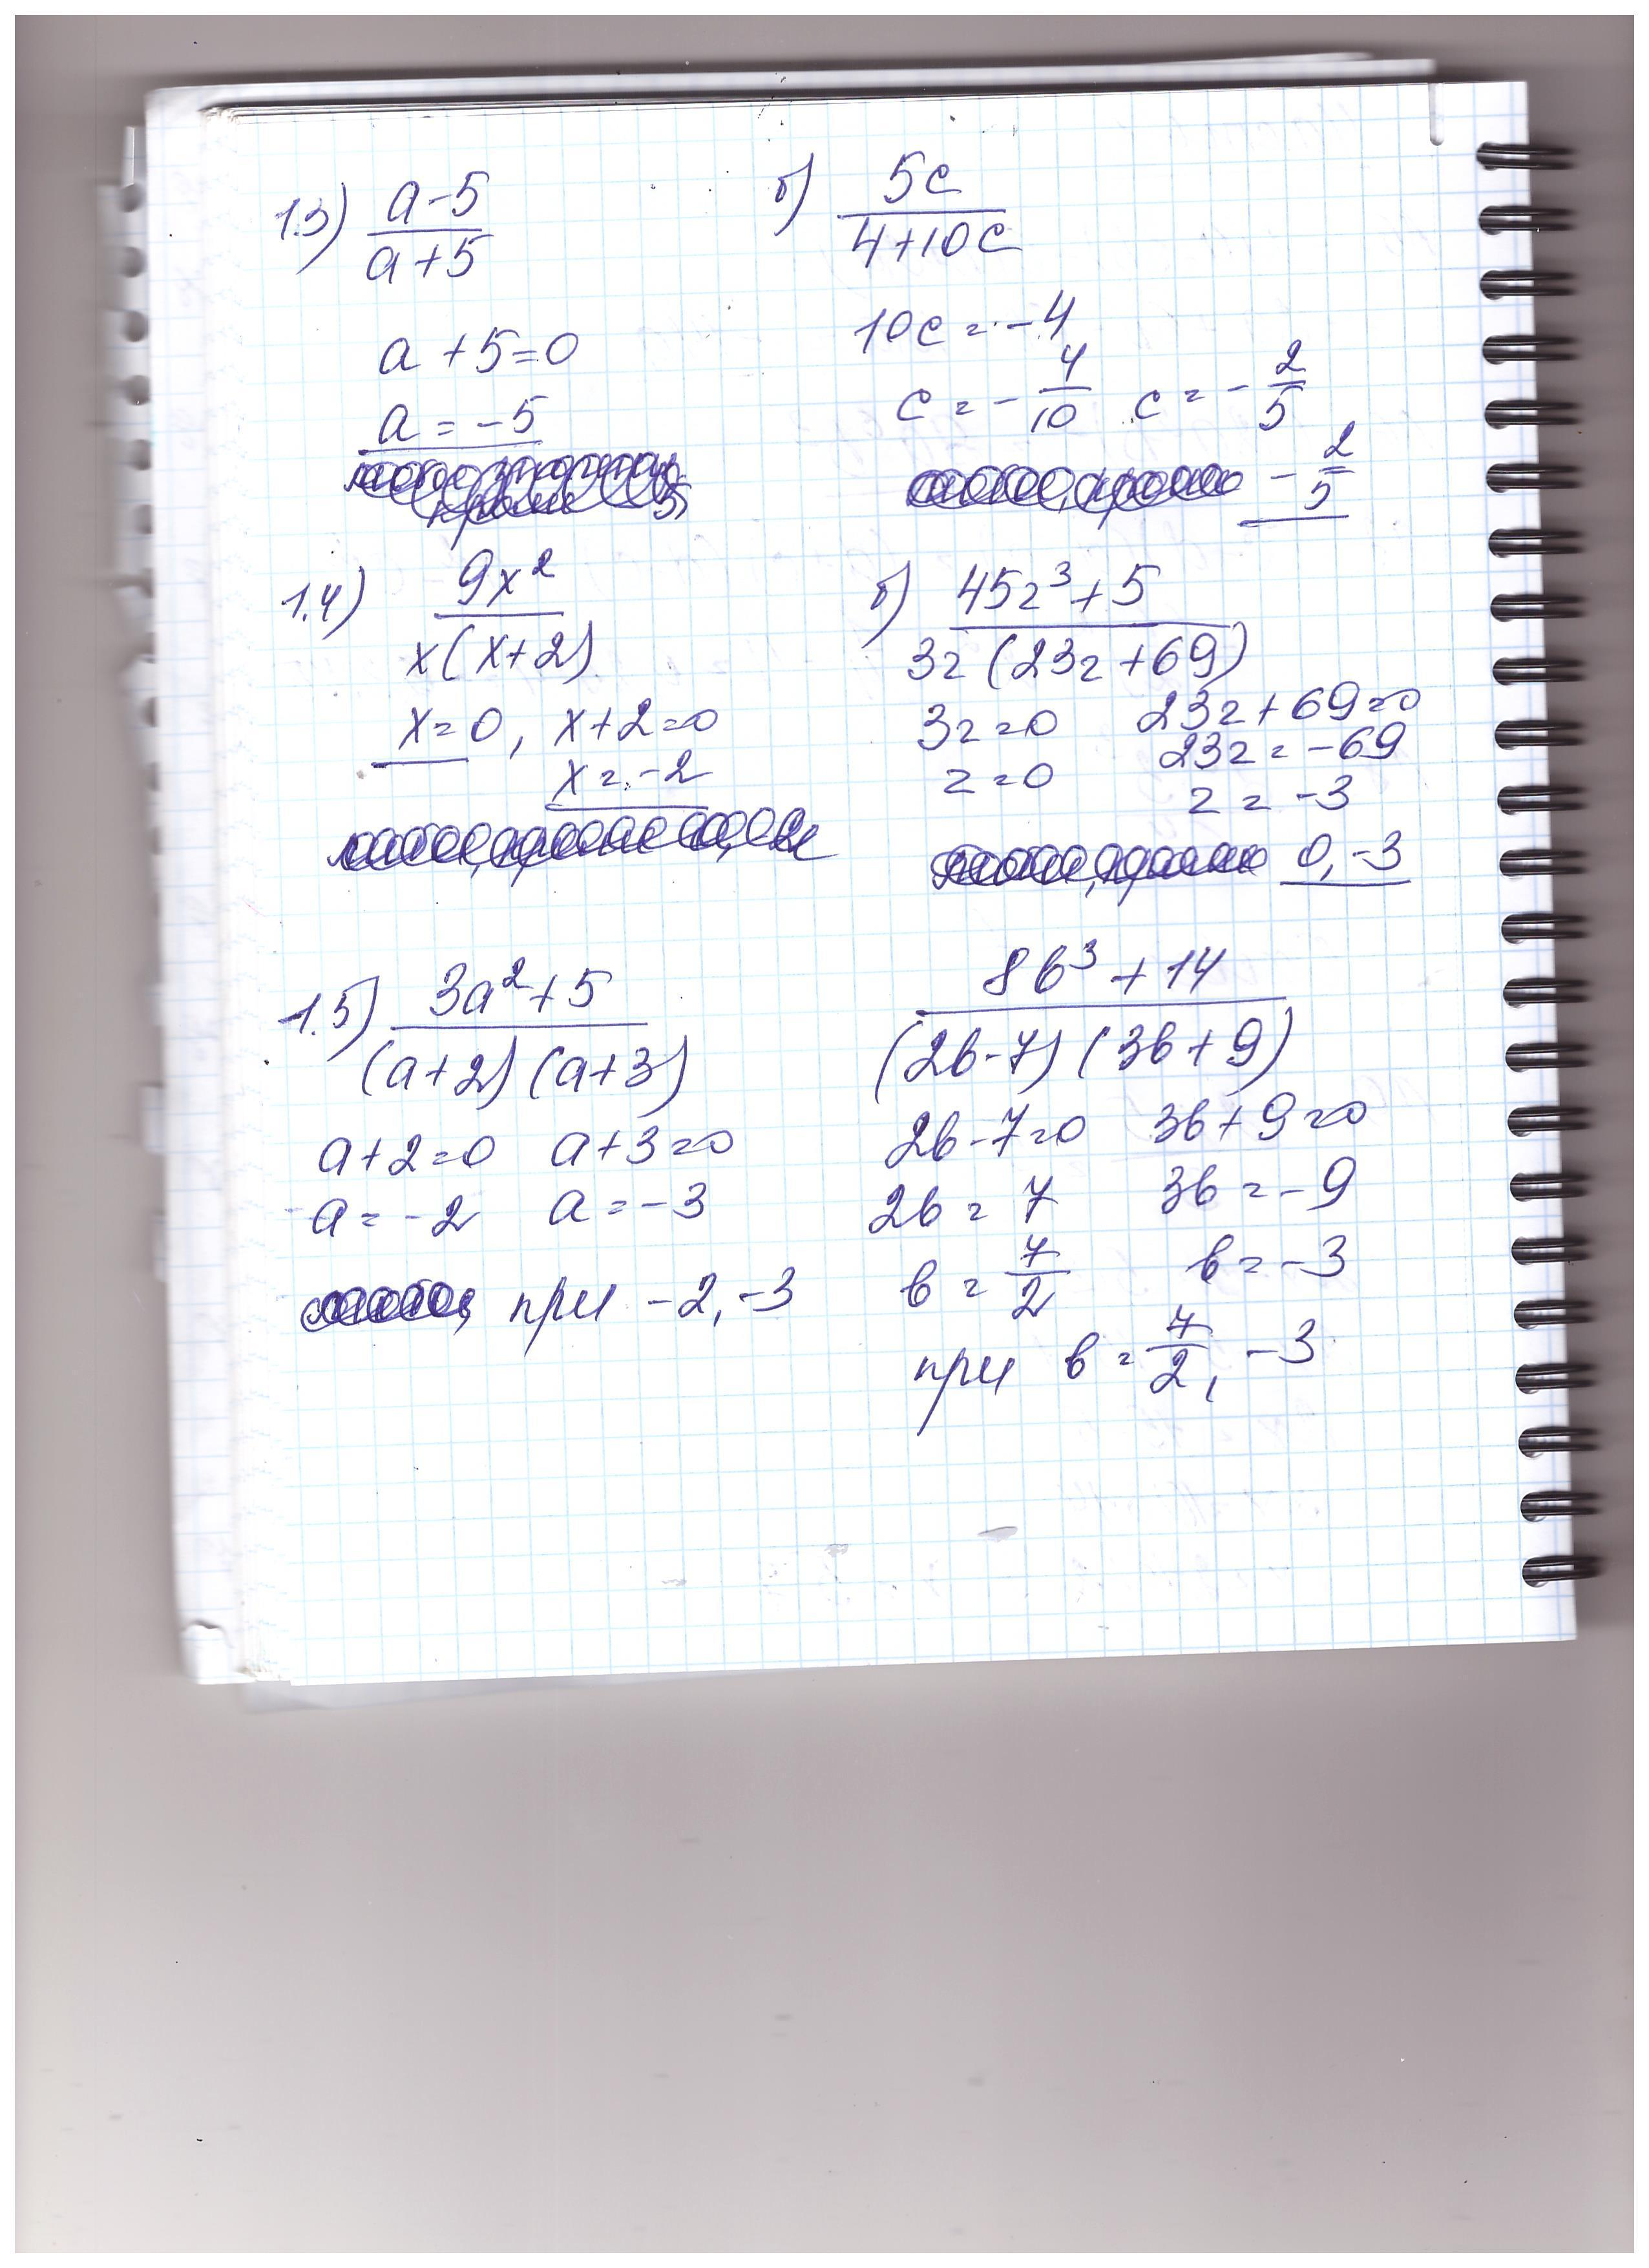 1.3) a-5/a+5
a+5=0
a=-5
б) 5c/4+10c
10c=-4
c=-4/10 c=-2/5
-2/5
1.4) 9x²/x(x+2)
x=0, x+2=0
x=-2
б) 45z³+5/3z(23z+69)
3z=0 23z+69=0
23z=-69
z=0 z=-3
0,-3
1.5) 3a²+5/(a+2)(a+3)
a+2=0 a+3=0
a=-2 a=-3
при -2,-3
8b³+14/(2b-7)(3b+9)
2b-7=0 3b+9=0
2b=7 3b=-9
b=7/2 b=-3
при b=7/2, -3